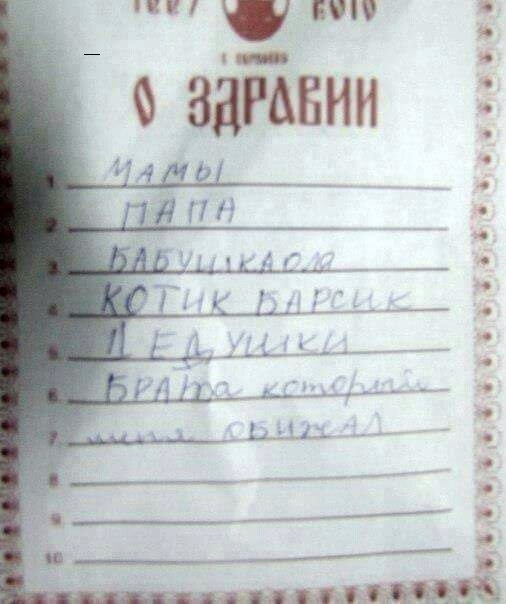 О ЗДРАВИИ
1 МАМЫ
2 ПАПА
3 БАБУШКА ОЛЯ
4 КОТИК БАРСИК
5 ДЕДУШКИ
6 БРАТа который
7 меня ОБИЖАЛ
8
9
10